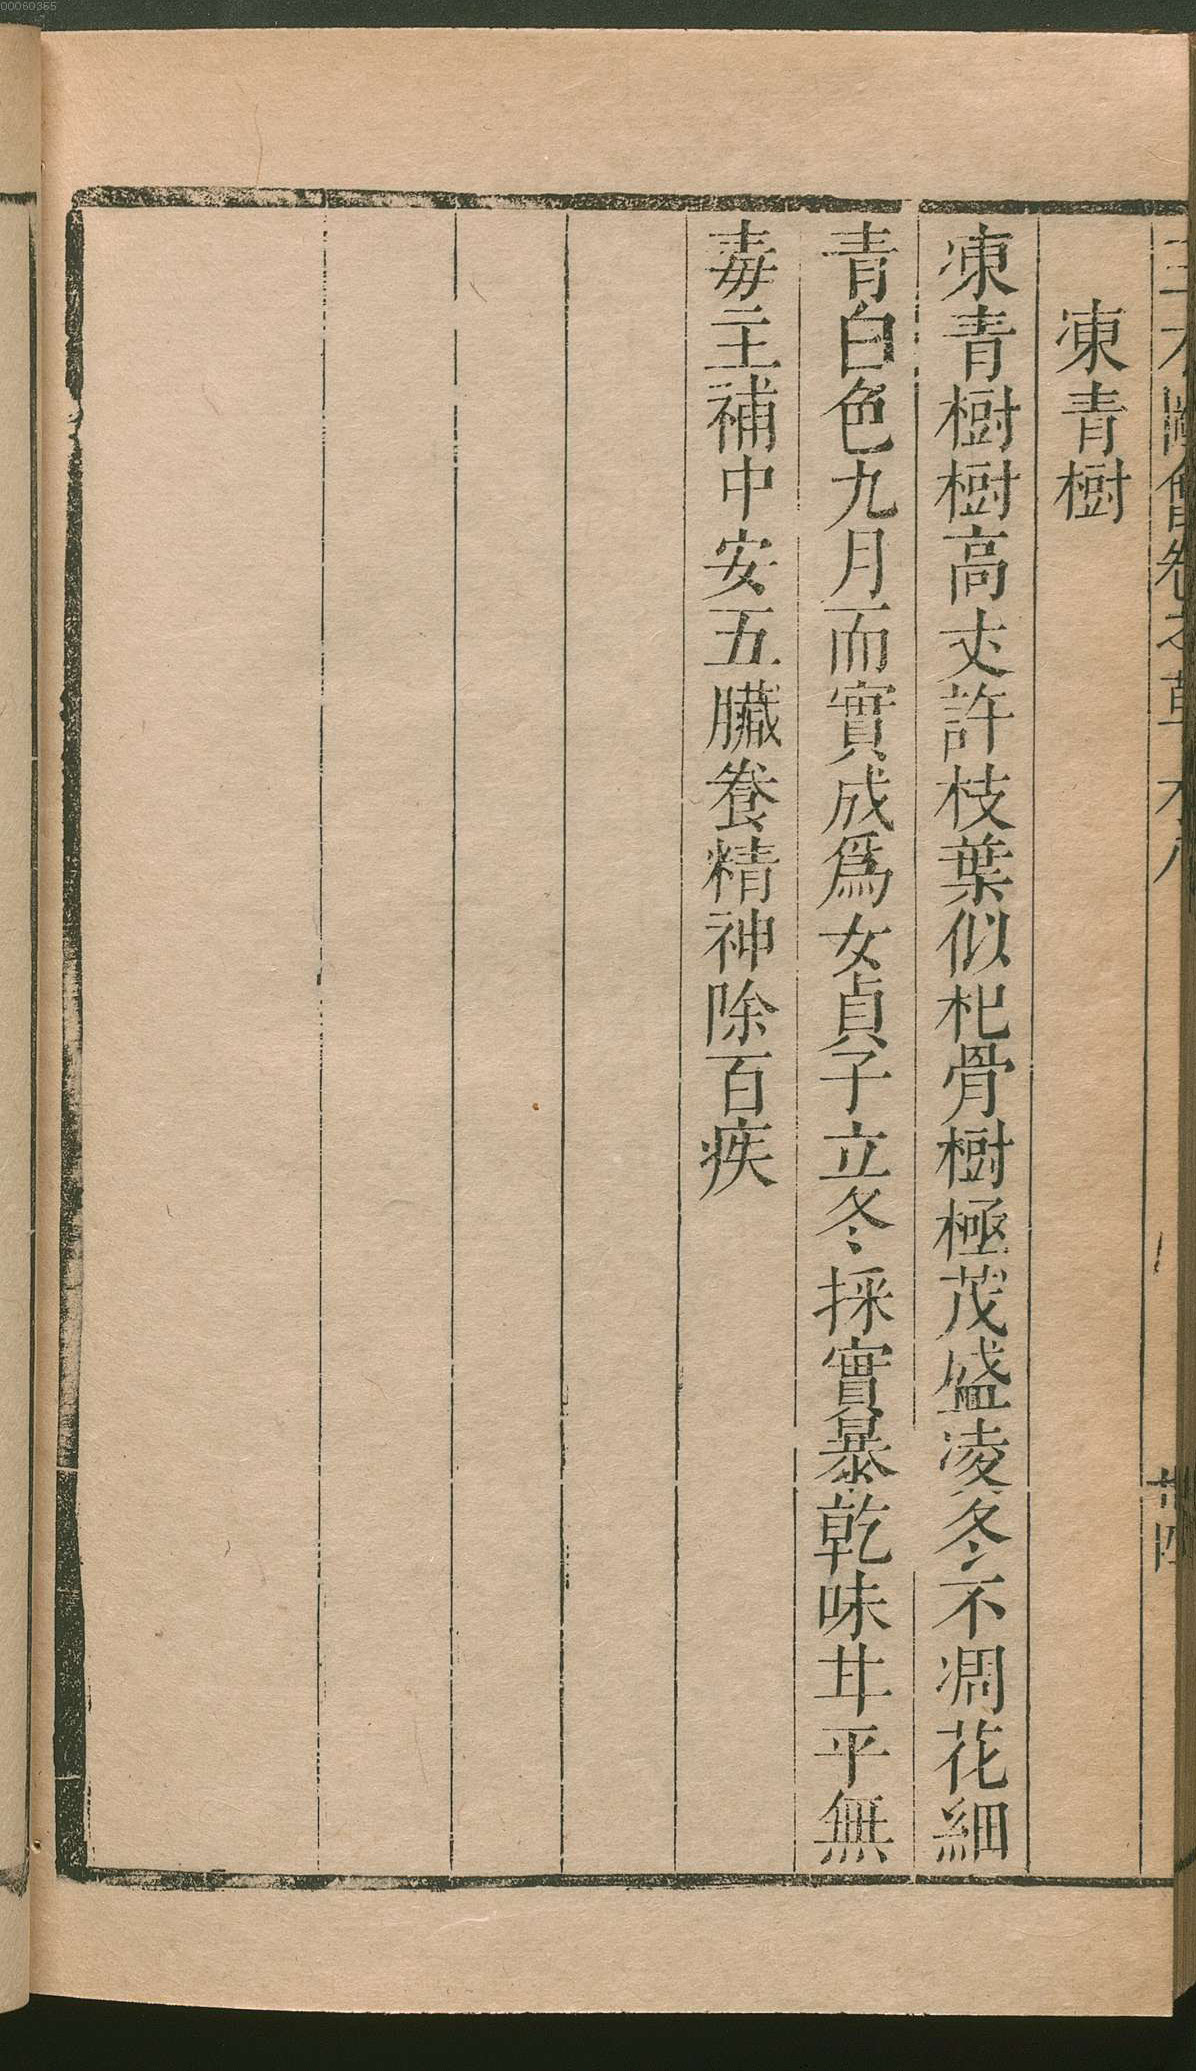 00060355
三才圖會卷之草木八
廿四
凍青樹
凍青樹樹高丈許枝葉似枸骨樹極茂盛凌冬不凋花細
青白色九月而實成爲女貞子立冬採實暴乾味甘平無
毒主補中安五臟養精神除百疾